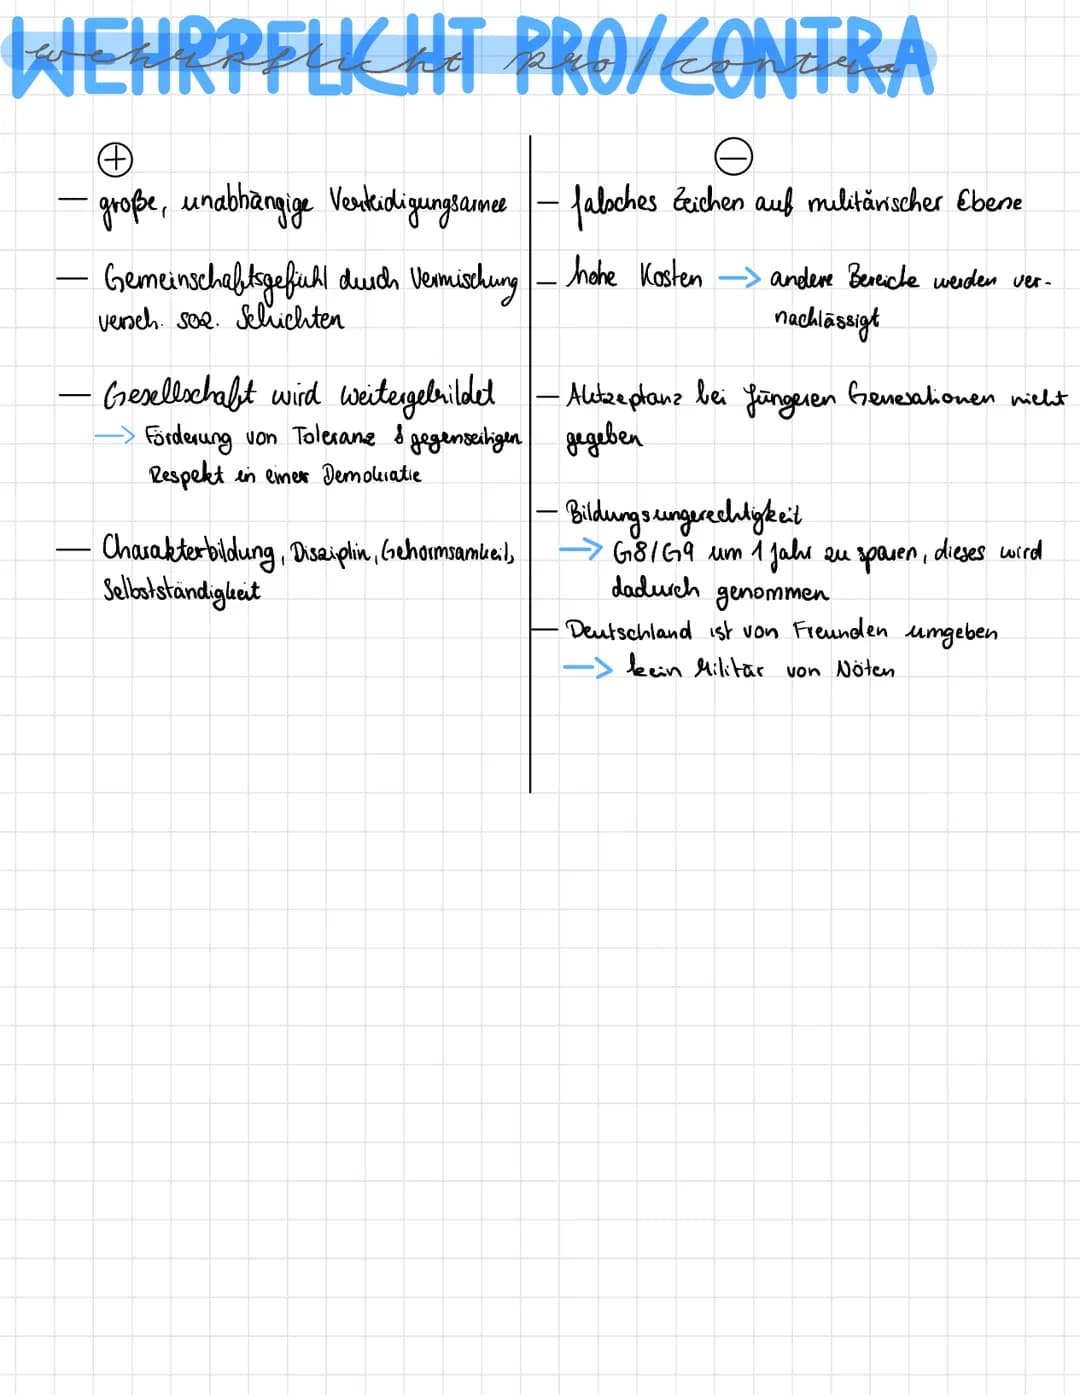 WEHRPFLICHT PRO/CONTRA
wehrpflicht pro/contra
+
— große, unabhängige Verteidigungsarmee
— Gemeinschaftsgefühl durch Vermischung
versch. soz. Schichten
— Gesellschaft wird weitergebildet
→ Förderung von Toleranz & gegenseitigen
Respekt in einer Demokratie
— Charakterbildung, Disziplin, Gehormsamkeit,
Selbstständigkeit
−
— falsches Zeichen auf militärischer Ebene
— hohe Kosten → andere Bereiche werden ver-
nachlässigt
— Aktzeptanz bei jüngeren Generationen nicht
gegeben
— Bildungsungerechtigkeit
→ G8/G9 um 1 Jahr zu sparen, dieses wird
dadurch genommen
— Deutschland ist von Freunden umgeben
→ kein Militär von Nöten